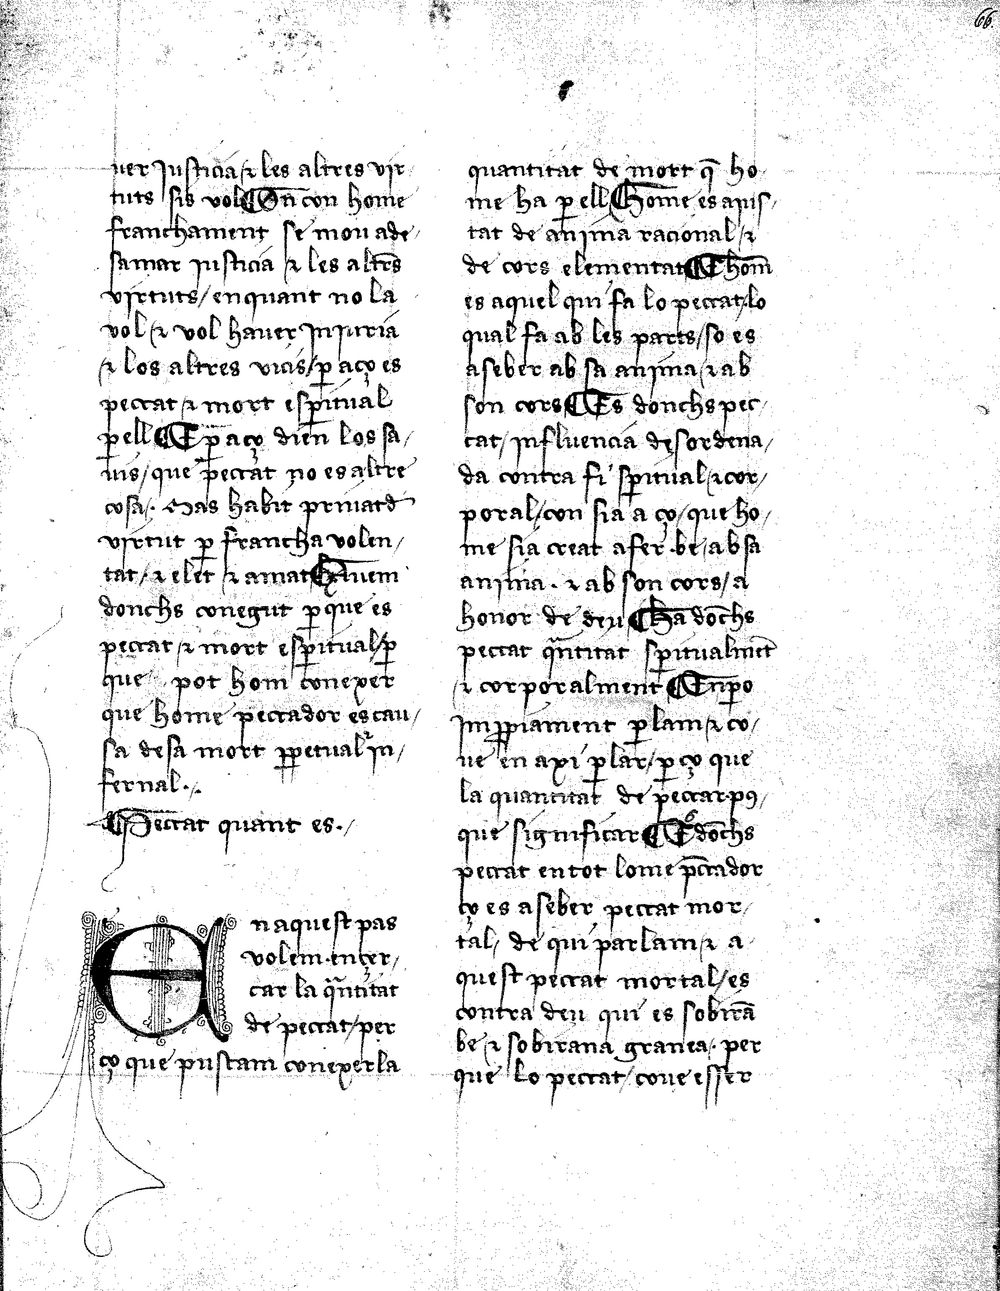 66.
uer justicia / & les altres vir-
tuts sis vol ¶ On con home
franchament se mou a de-
samar justicia / & les altres
virtuts / en quant no la
vol / & vol hauer injuria
& los altres vicis / p̱ aço es
peccat & mort espiritual
p̱ ell ¶ E p̱ aço dien los sa-
uis / que peccat no es altre
cosa . Mas habit priuat d
virtut p̱ francha volen-
tat / & elet & amat
donchs conegut p̱ que es
peccat & mort esp̱itual / p̱
que pot hom conexer
que home peccador es cau-
sa de sa mort p̱petual in-
fernal .
¶ Peccat quant es .
En aquest pas
volem encer-
car la q̃ntitat
de peccat / per
ço que puscam conexer la
quantitat de mort q̃ ho-
me ha p̱ ell ¶ Home es ajus-
tat de anima racional / &
de cors elementat ¶ E hom̄
es aquel qui fa lo peccat / lo
qual fa ab les parts / so es
a seber ab sa anima / & ab
son cors ¶ Es donchs pec-
cat / influencia desordena-
da contra fi sp̱itual / & cor-
poral / con sia aço / que ho-
me sia creat a fer be / ab sa
anima . & ab son cors / a
honor de deu ¶ Ha dōchs
peccat q̃ntitat sp̱itualmēt
& corporalment ¶ Enp̱o
imp̱piament p̱lam / & co-
ue en axi p̱lar / p̱ ço que
la quantitat de peccat pꝯ-
que significar ¶ E dōchs
peccat en tot lome pc̄cador
ço es a seber peccat mor-
tal / de qui parlam / & a-
quest peccat mortal / es
contra deu qui es sobirā
be / & sobirana granea . per
que lo peccat / coue esser